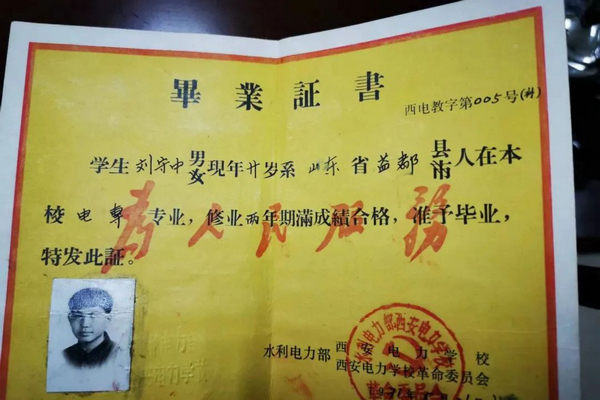 畢業証書
西电教字第005号(补)
学生刘守中男女现年廿岁系山东省益都县市人在本
校电 专业，修业两年期满成績合格，准予毕业，
特发此証。
为人民服務
水利电力部西安电力学校
西安电力学校革命委员会
水利电力部西安电力学校
革命委员会